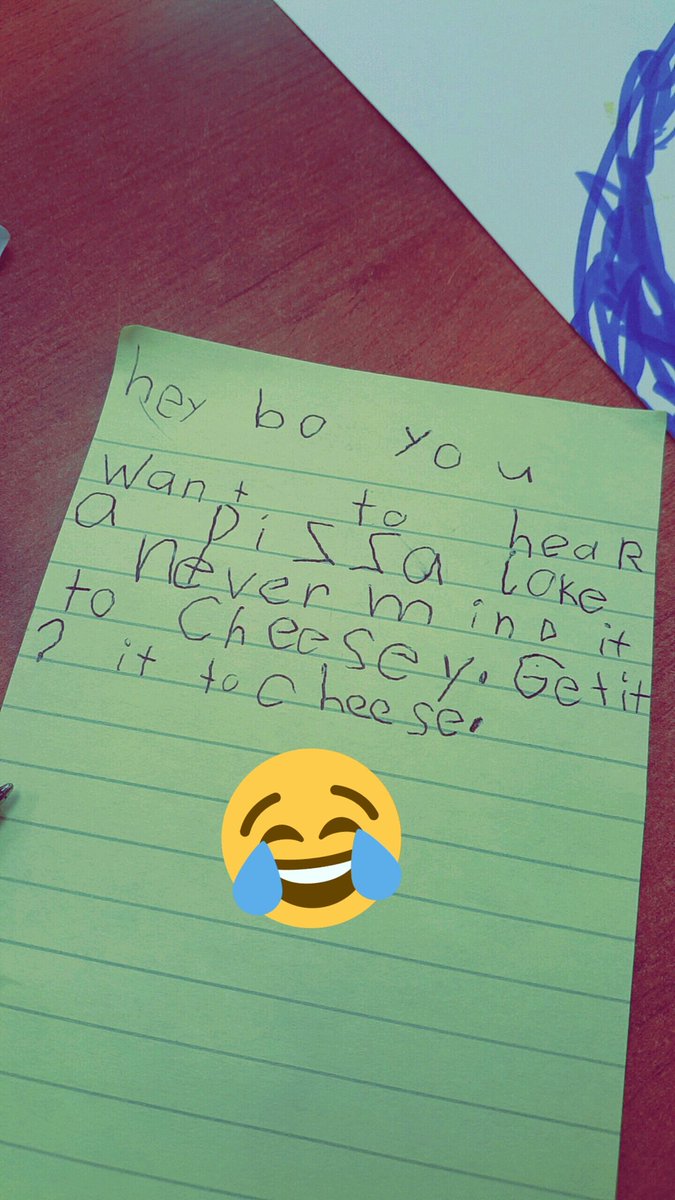 hey bo you
want to hear
a pissa loke
never mind it
to cheesey. Get it
? it to cheese.